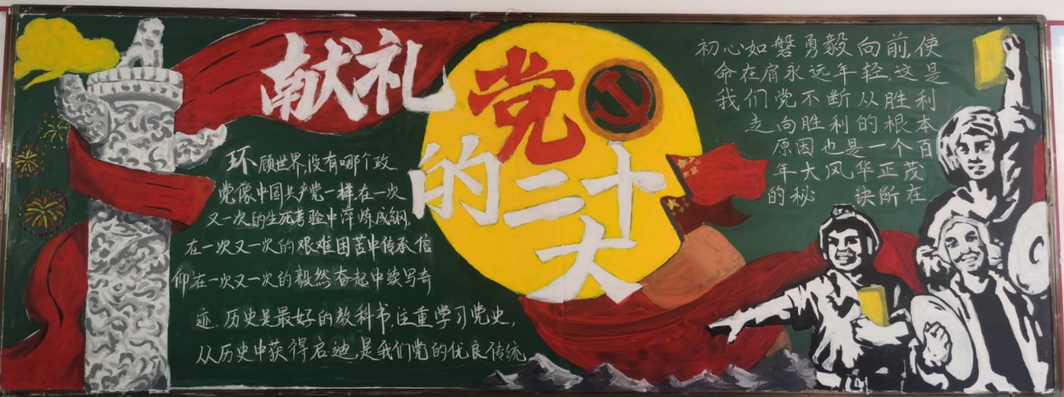 献礼
党
的二十
大
环顾世界,没有哪个政
党像中国共产党一样在一次
又一次的生死考验中淬炼成钢,
在一次又一次的艰难困苦中传承信
仰在一次又一次的毅然奋起中续写奇
迹.历史是最好的教科书,注重学习党史,
从历史中获得启迪,是我们党的优良传统
初心如磐勇毅向前,使
命在肩永远年轻.这是
我们党不断从胜利
走向胜利的根本
原因也是一个百
年大风华正茂
的秘 诀所在